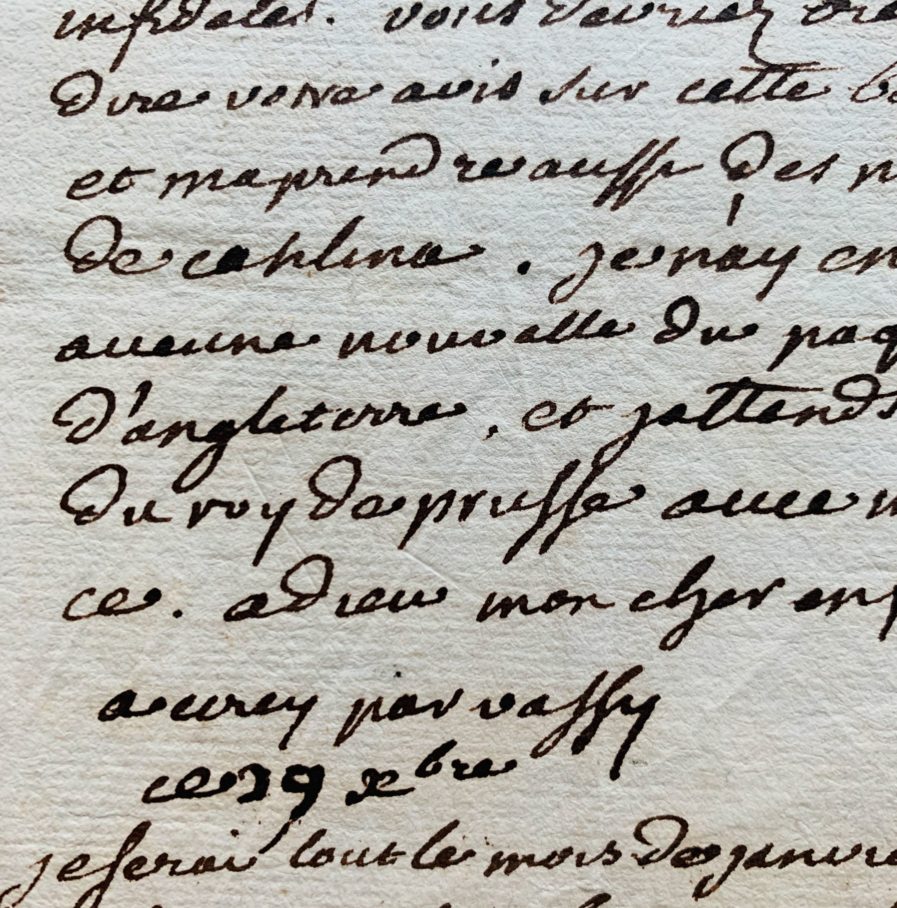 infideles. vous devriez
dire votre avis sur cette
et maprendre aussi des
de catilina. je n'ay en
aucune nouvelle du paq
d'angleterre, et jattends
du roy de prusse avec
ce. adieu mon cher
a cirey par vassy
ce 29 xbre
je serai tout le mois de janvie